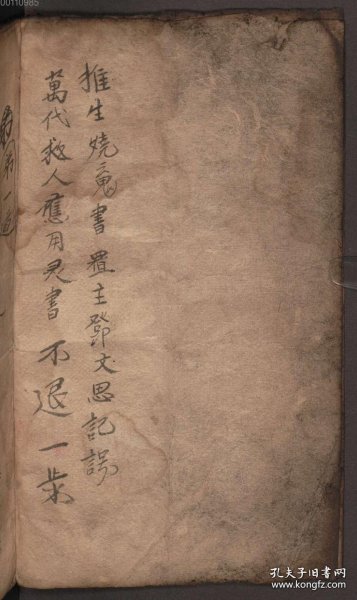 00110985
推生燒䰟書置主鄧文思記謁
萬代救人應用灵書 不退一步
孔夫子旧书网
www.kongfz.com